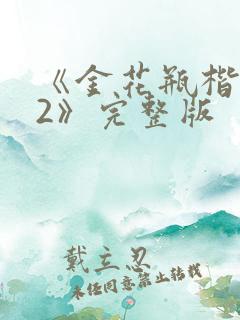 《金花瓶楷
2》完整版
戴立忍
未经同意禁止转载